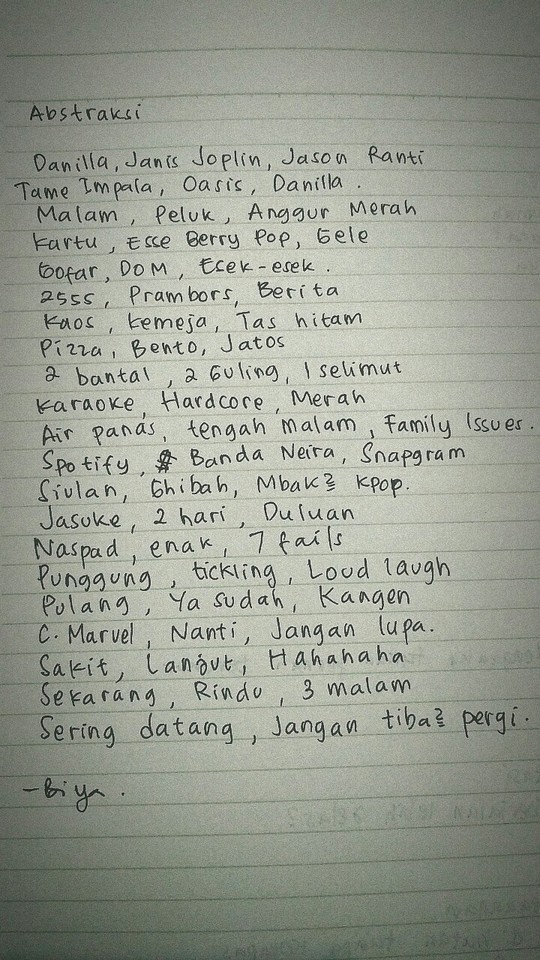 Abstraksi
Danilla, Janis Joplin, Jason Ranti
Tame Impala, Oasis, Danilla.
Malam, Peluk, Anggur Merah
Kartu, Esse Berry Pop, Gele
Gofar, DOM, Esek-esek.
2555, Prambors, Berita
Kaos, Kemeja, Tas hitam
Pizza, Bento, Jatos
2 bantal, 2 Guling, 1 selimut
Karaoke, Hardcore, Merah
Air panas, tengah malam, Family Issues.
Spotify, Banda Neira, Snapgram
Siulan, Ghibah, Mbak2 Kpop.
Jasuke, 2 hari, Duluan
Naspad, enak, 7 fails
Punggung, tickling, Loud laugh
Pulang, Ya sudah, Kangen
C. Marvel, Nanti, Jangan lupa.
Sakit, Lanjut, Hahahaha
Sekarang, Rindu, 3 malam
Sering datang, Jangan tiba2 pergi.
-Biya.